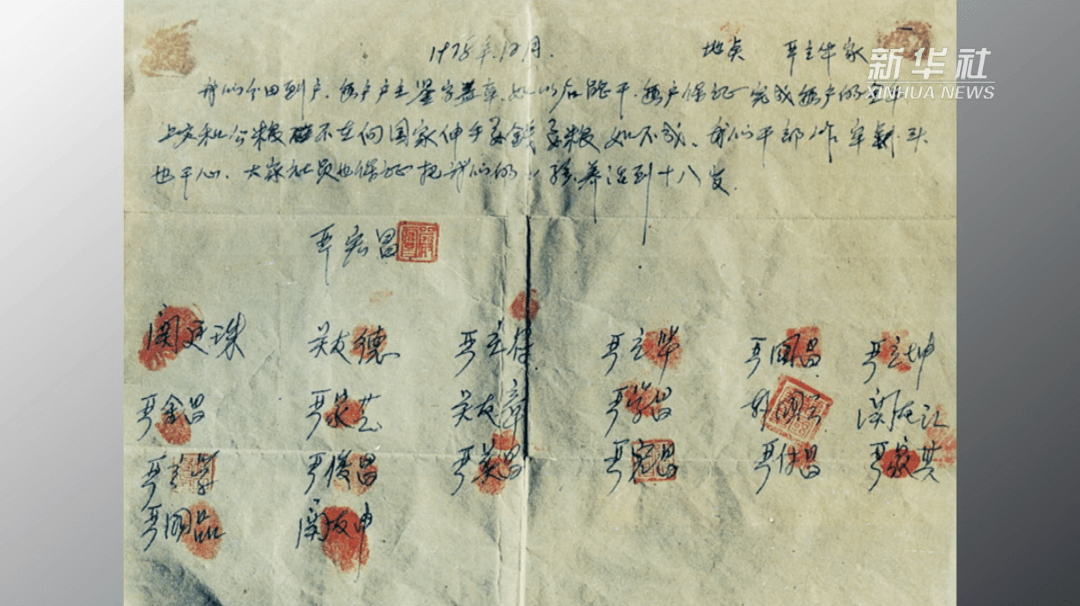 新华社
XINHUA NEWS
1978年12月. 地点 严立华家
我们分田到户,每户户主签字盖章,如以后能干,每户保证完成每户的全年
上交和公粮不在向国家伸手要钱要粮如不成,我们干部作牢刹头
也干心,大家社员也保证把我们的小孩养活到十八岁.
严宏昌
关廷珠 关友德 严立符 严立华 严国昌 严立坤
严金昌 严家芝 关友章 严学昌 韩国云 关友江
严立学 严俊昌 严美昌 严宏昌 严付昌 严家其
严国品 关友申